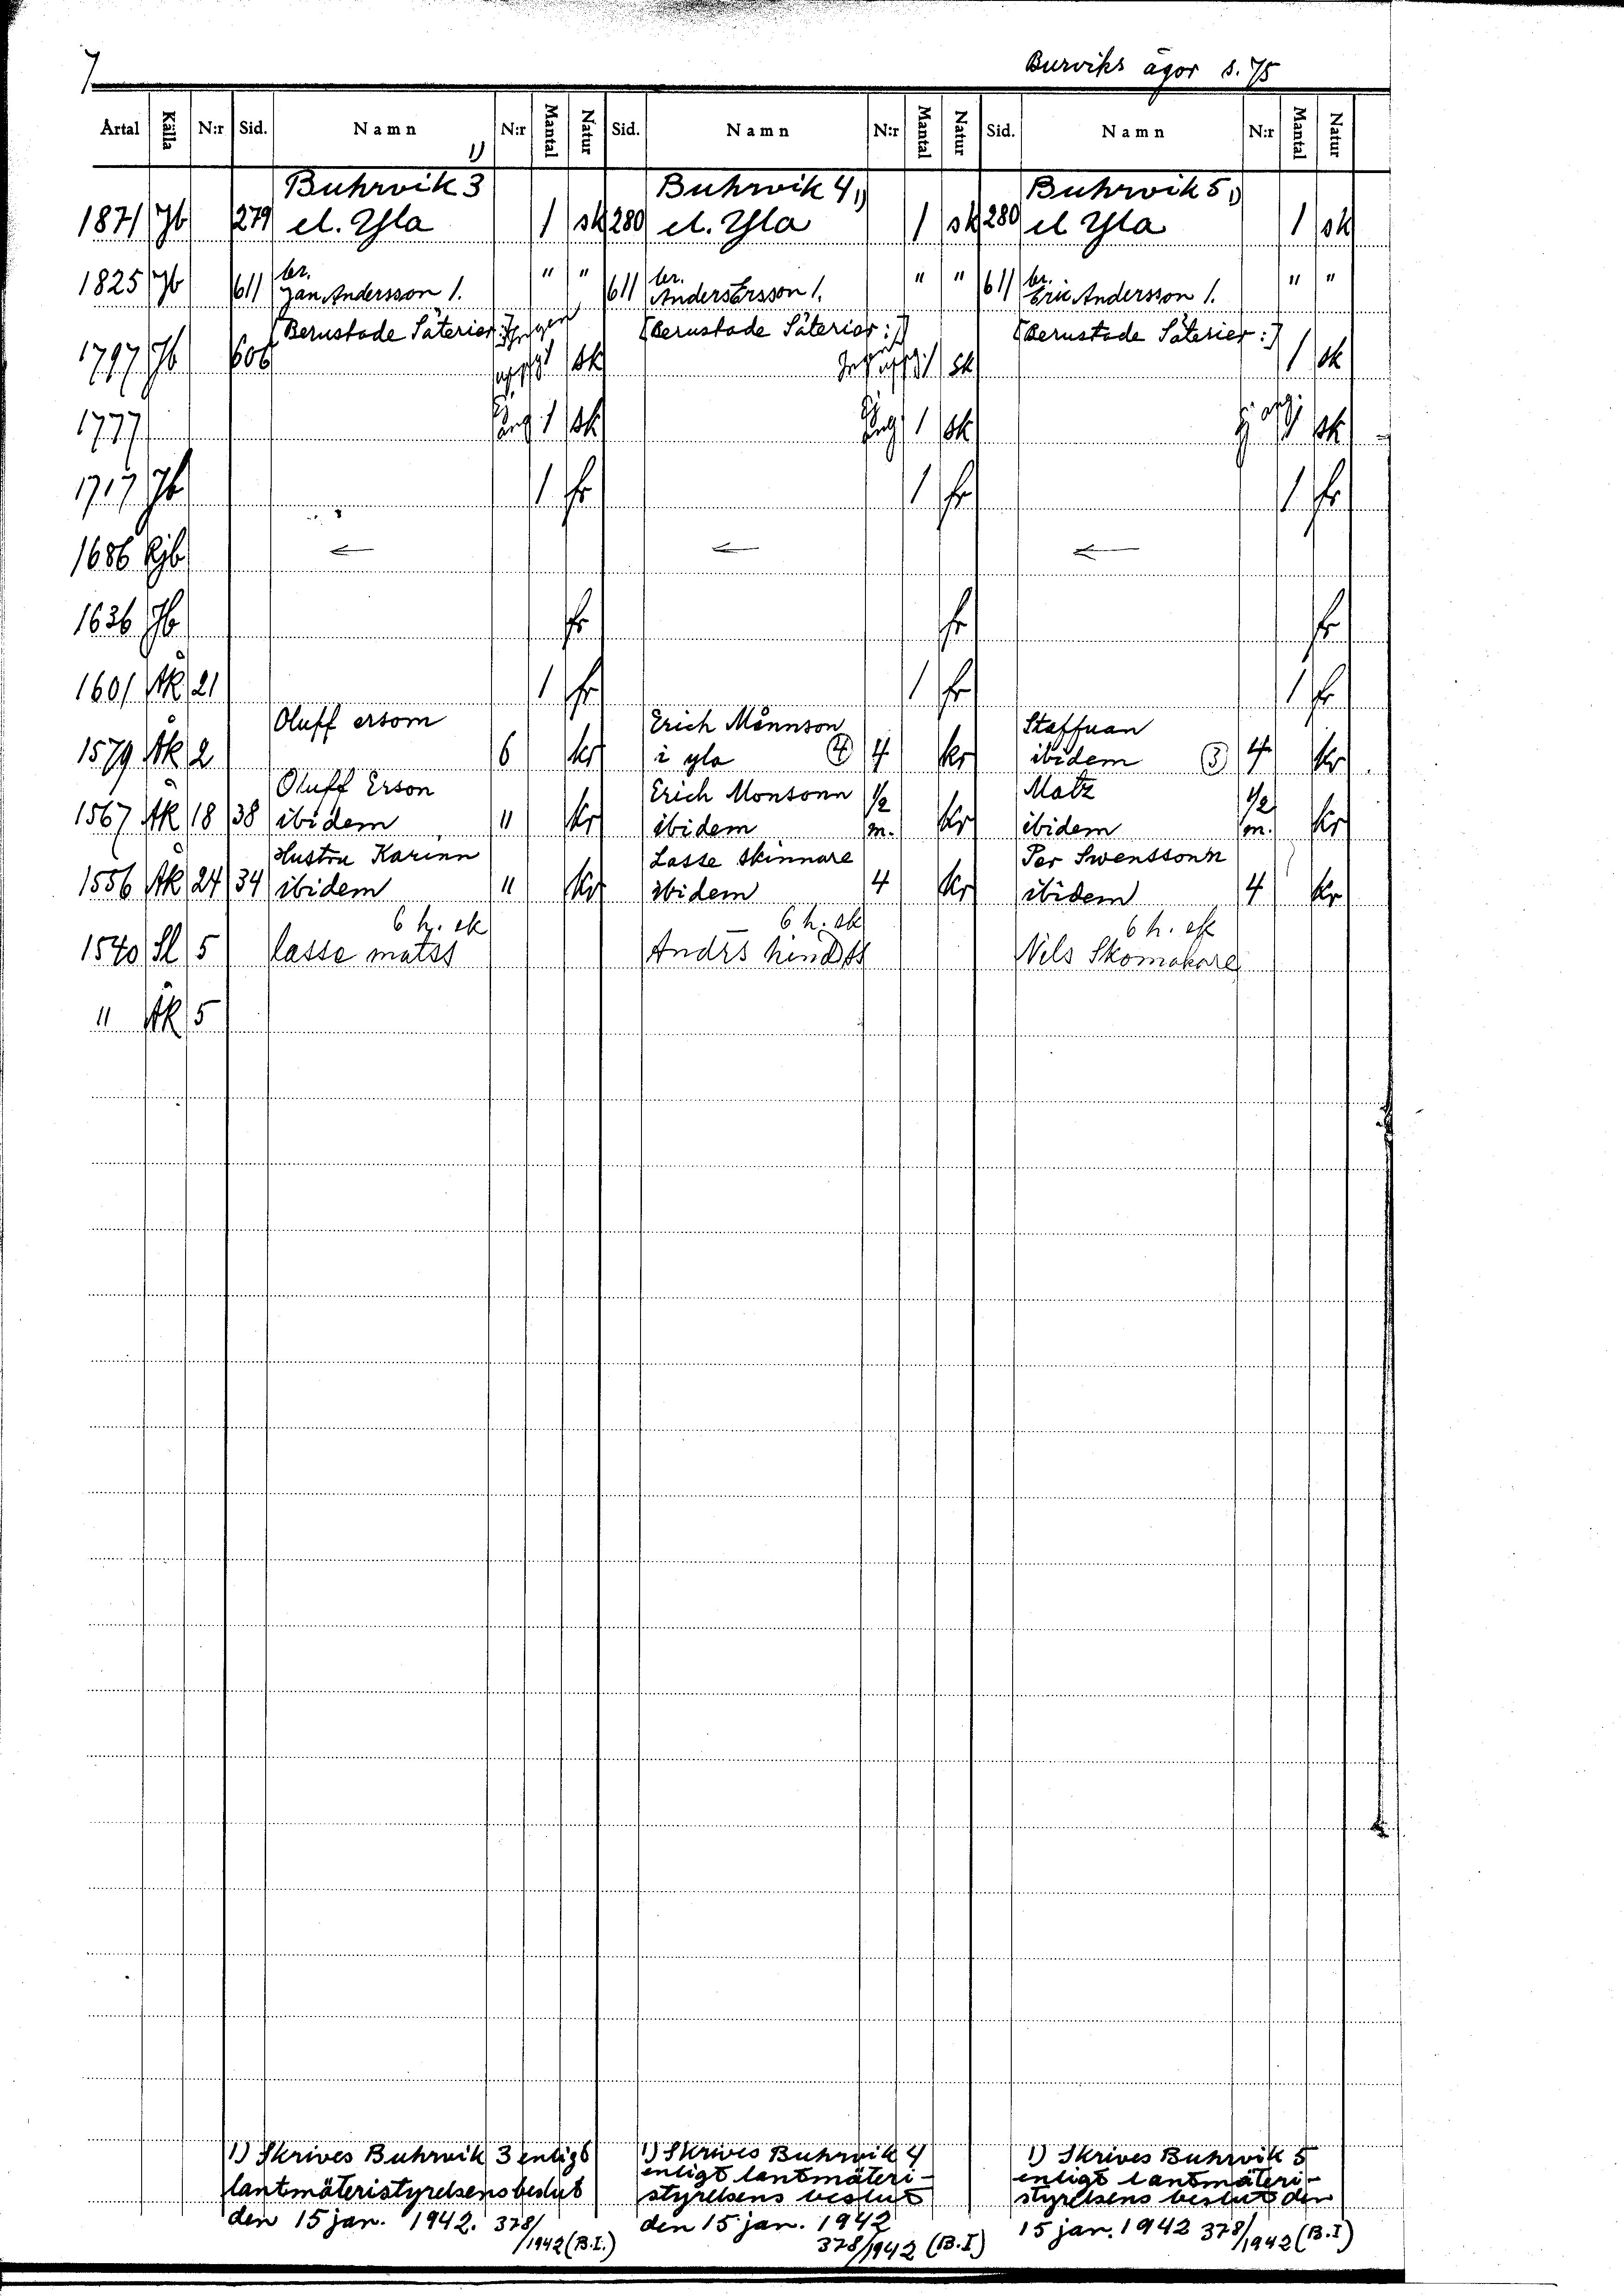 7
Burviks ägor s. 75
Årtal Källa N:r Sid. Namn N:r Mantal Natur Sid. Namn N:r Mantal Natur Sid. Namn N:r Mantal Natur
1)
Buhrvik 3 Buhrvik 4 1) Buhrvik 5 1)
1871 Jb 279 el. Yla 1 sk 280 el. Yla 1 sk 280 el Yla 1 sk
1825 Jb 611 br. Jan Andersson 1. " " 611 br. Anders Ersson 1. " " 611 br. Eric Andersson 1. " "
[Berustade Säterier:] [Berustade Säterier:] [Berustade Säterier:]
1797 Jb 606 1 sk 1 sk 1 sk
1777 1 sk 1 sk 1 sk
1717 Jb 1 fr 1 fr 1 fr
1686 Rjb ← ← ←
1636 Jb fr fr fr
1601 Åk 21 1 fr 1 fr 1 fr
Oluff ersom Erich Månnson Staffuan
1579 Åk 2 6 kr i yla 4 4 kr ibidem 3 4 kr
Oluff Erson Erich Monsonn 1/2 Matz 1/2
1567 Åk 18 38 ibidem " kr ibidem m. kr ibidem m. kr
Hustru Karinn Lasse skinnare Per Swensson
1556 Åk 24 34 ibidem " kr ibidem 4 kr ibidem 4 kr
6 h. sk 6 h. sk 6 h. sk
1540 Sl 5 lasse matss Andrs hindss Nils Skomakare
" Åk 5
1) Skrives Buhrvik 3 enligt
lantmäteristyrelsens beslut
den 15 jan. 1942. 378/
/1942 (B.I.)
1) Skrives Buhrvik 4
enligt lantmäteri-
styrelsens beslut
den 15 jan. 1942
378/1942 (B.I)
1) Skrives Buhrvik 5
enligt lantmäteri-
styrelsens beslut den
15 jan. 1942 378/
/1942 (B.I)